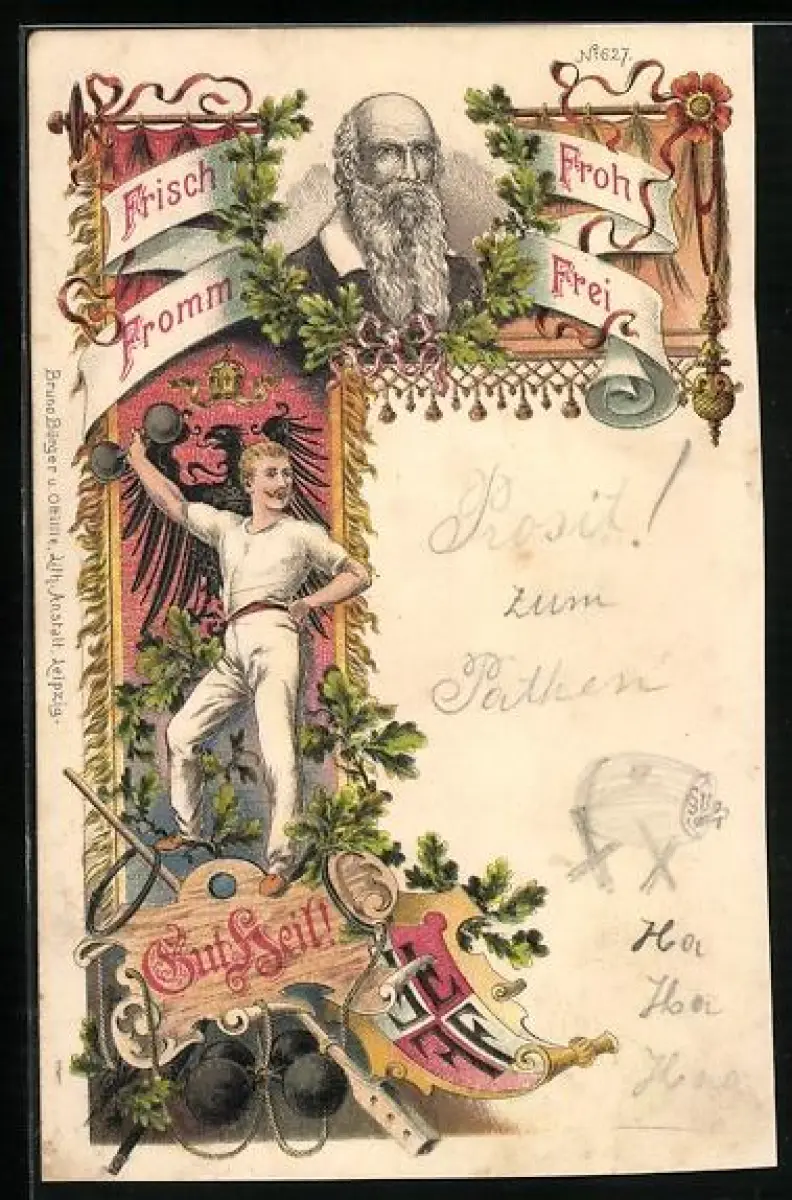 No 627.
Frisch
Froh
Fromm
Frei
Bruno Bürger u. Ottillie, Lith. Anstalt. Leipzig.
Prosit!
zum
Pathen
Gut Heil!
Ha
Ha
Haa